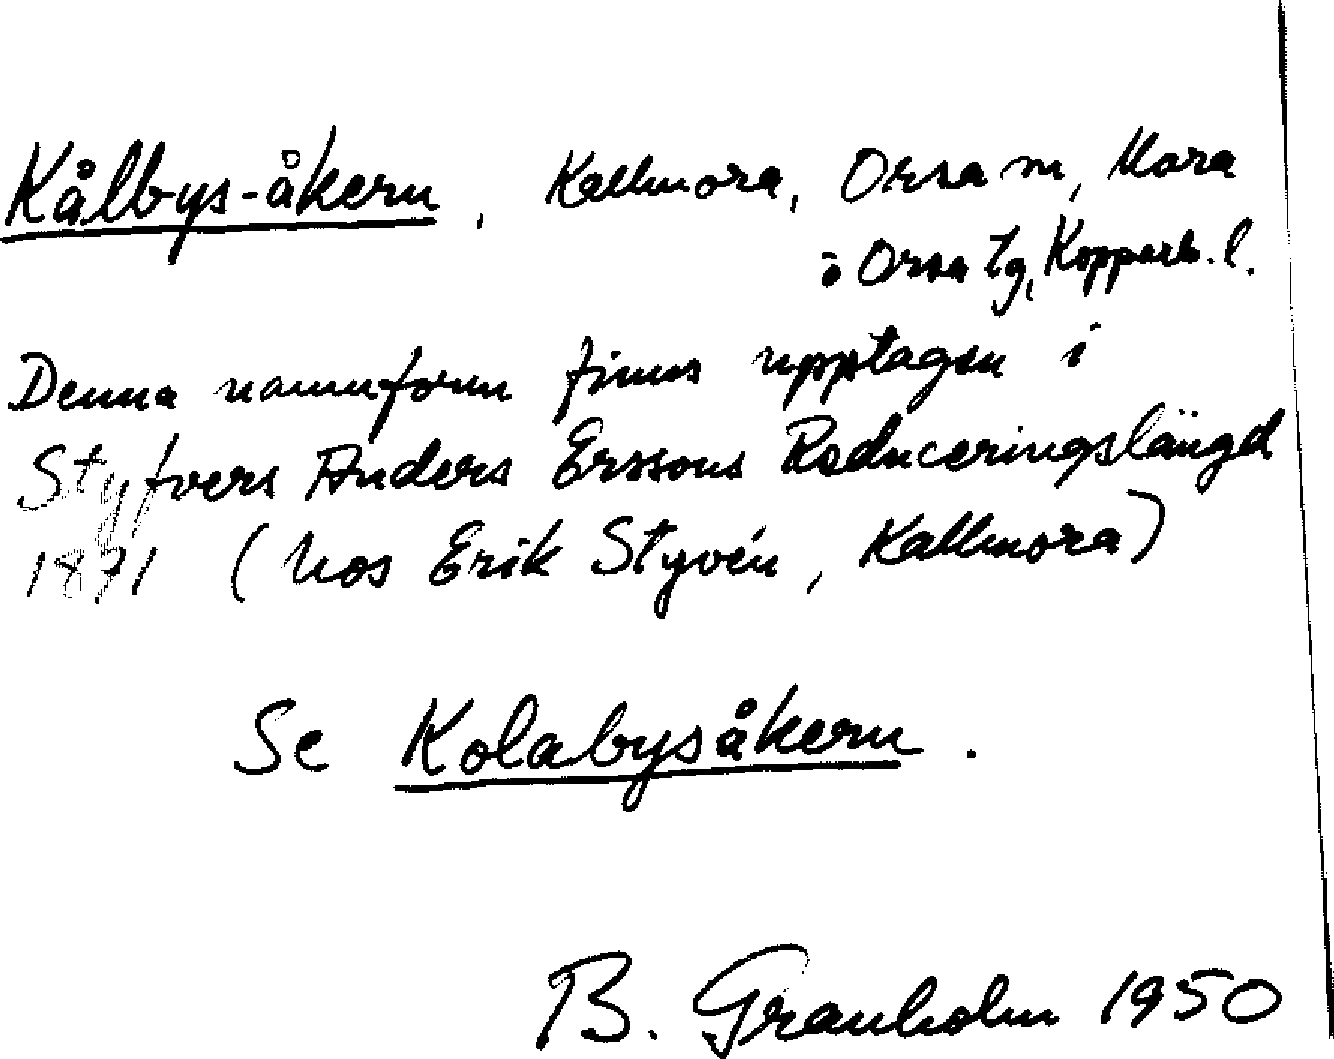 Kålbys-åkern, Kallmora, Orsa sn, Mora
o Orsa tg, Kopparb. l.
Denna namnform finns upptagen i
Styfvers Anders Erssons Reduceringslängd
1871 (hos Erik Styvén, Kallmora)
Se Kolabysåkern.
B. Granholm 1950